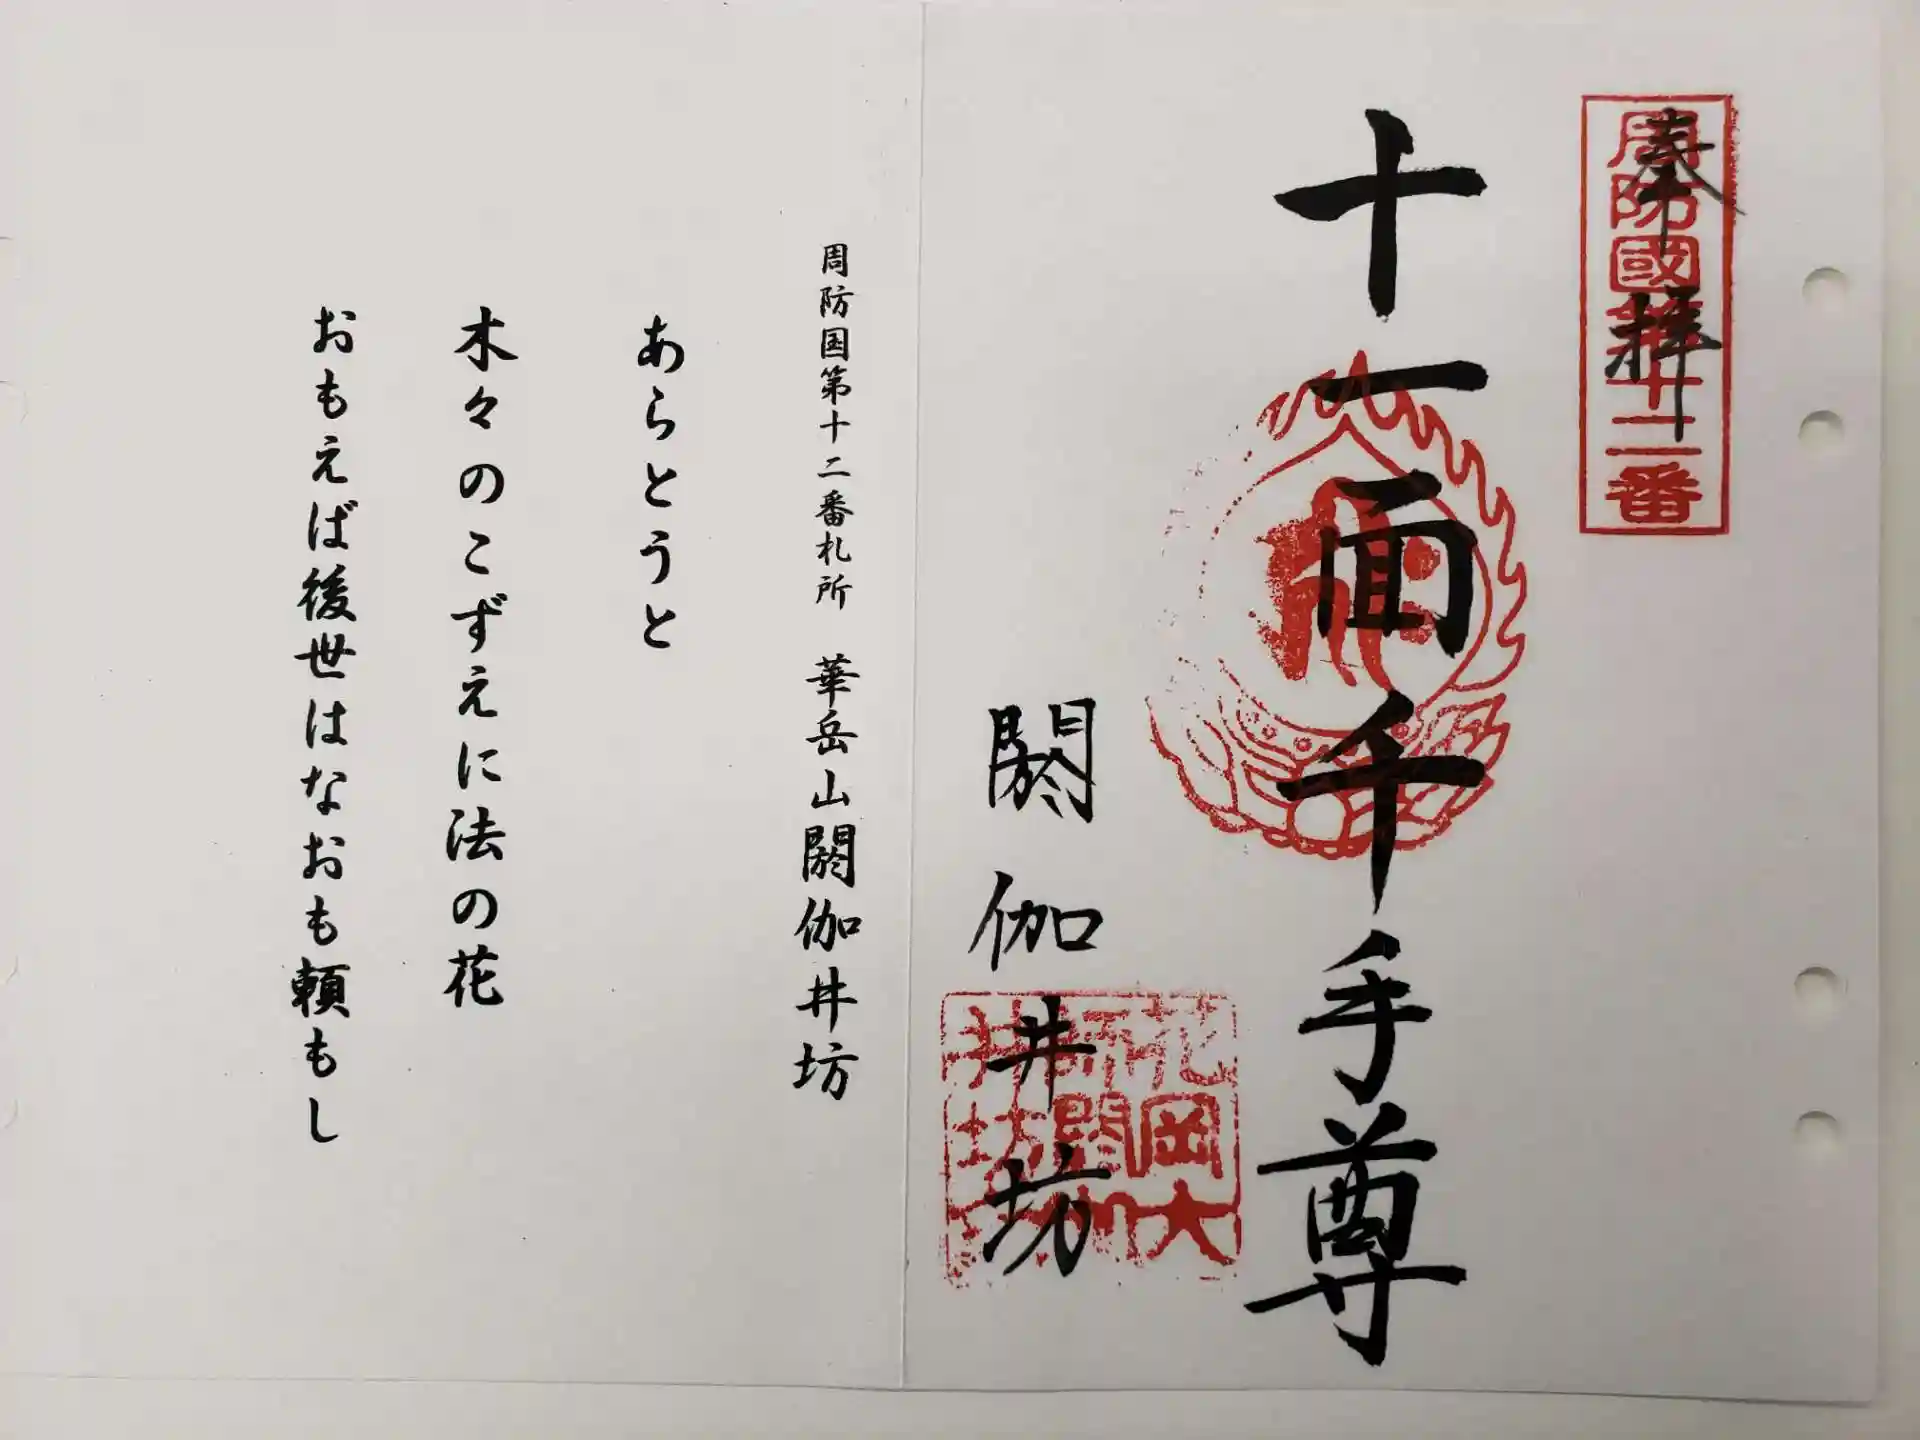 奉拝
周防國第十二番
十一面千手尊
閼伽井坊
花岡大
井坊
周防国第十二番札所 華岳山閼伽井坊
あらとうと
木々のこずえに法の花
おもえば後世はなおも頼もし